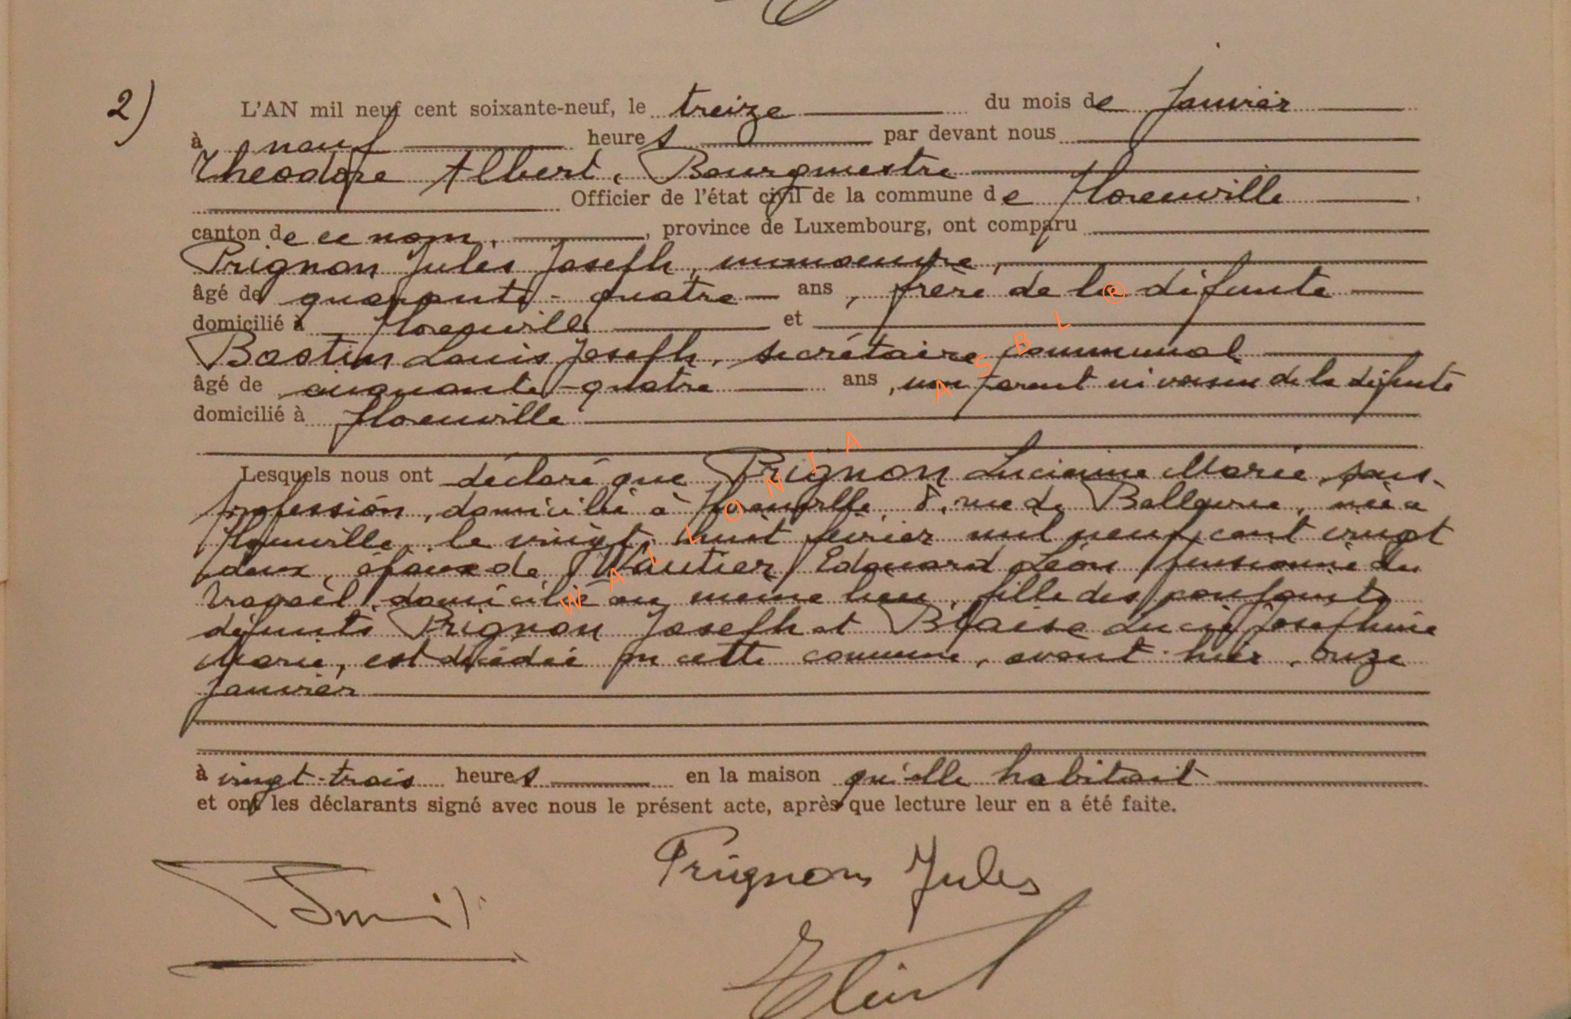 2)
L'AN mil neuf cent soixante-neuf, le treize du mois de janvier
à neuf heures par devant nous
Théodore Albert, Bourgmestre
Officier de l'état civil de la commune de Florenville,
canton de ce nom, , province de Luxembourg, ont comparu
Prignon Jules Joseph, manoeuvre,
âgé de quarante-quatre ans, frère de la défunte
domicilié à Florenville et
Bastin Louis Joseph, secrétaire communal
âgé de cinquante-quatre ans, non parent ni voisin de la défunte
domicilié à Florenville
Lesquels nous ont déclaré que Prignon Lucienne Marie, sans
profession, domiciliée à Florenville, 8, rue de, née à
Florenville, le vingt-huit février mil neuf cent vingt
deux, épouse de Wautier Edouard Léon, pensionné du
travail, domicilié au même lieu, fille des conjoints
défunts Prignon Joseph et Blaise Lucie Joséphine
Marie, est décédée en cette commune, avant-hier, onze
janvier
à vingt-trois heures en la maison qu'elle habitait
et ont les déclarants signé avec nous le présent acte, après que lecture leur en a été faite.
Prignon Jules
WALLONIA ASBL @